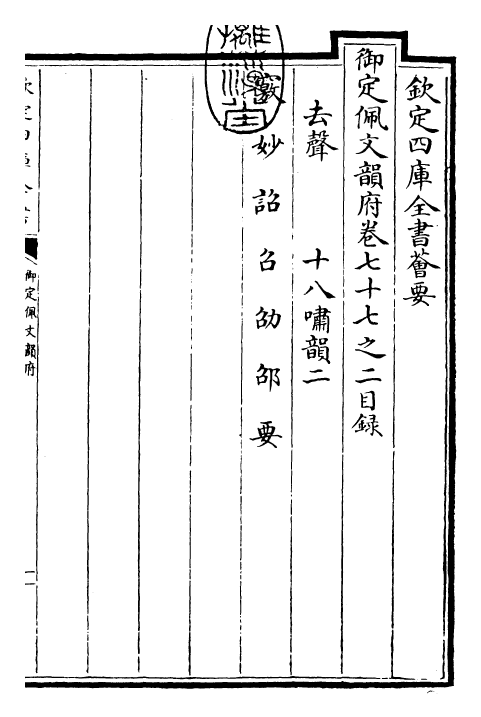 欽定四庫全書薈要
御定佩文韻府卷七十七之二目録
去聲　十八嘯韻二
竅妙詔召劭邵要
御定佩文韻府